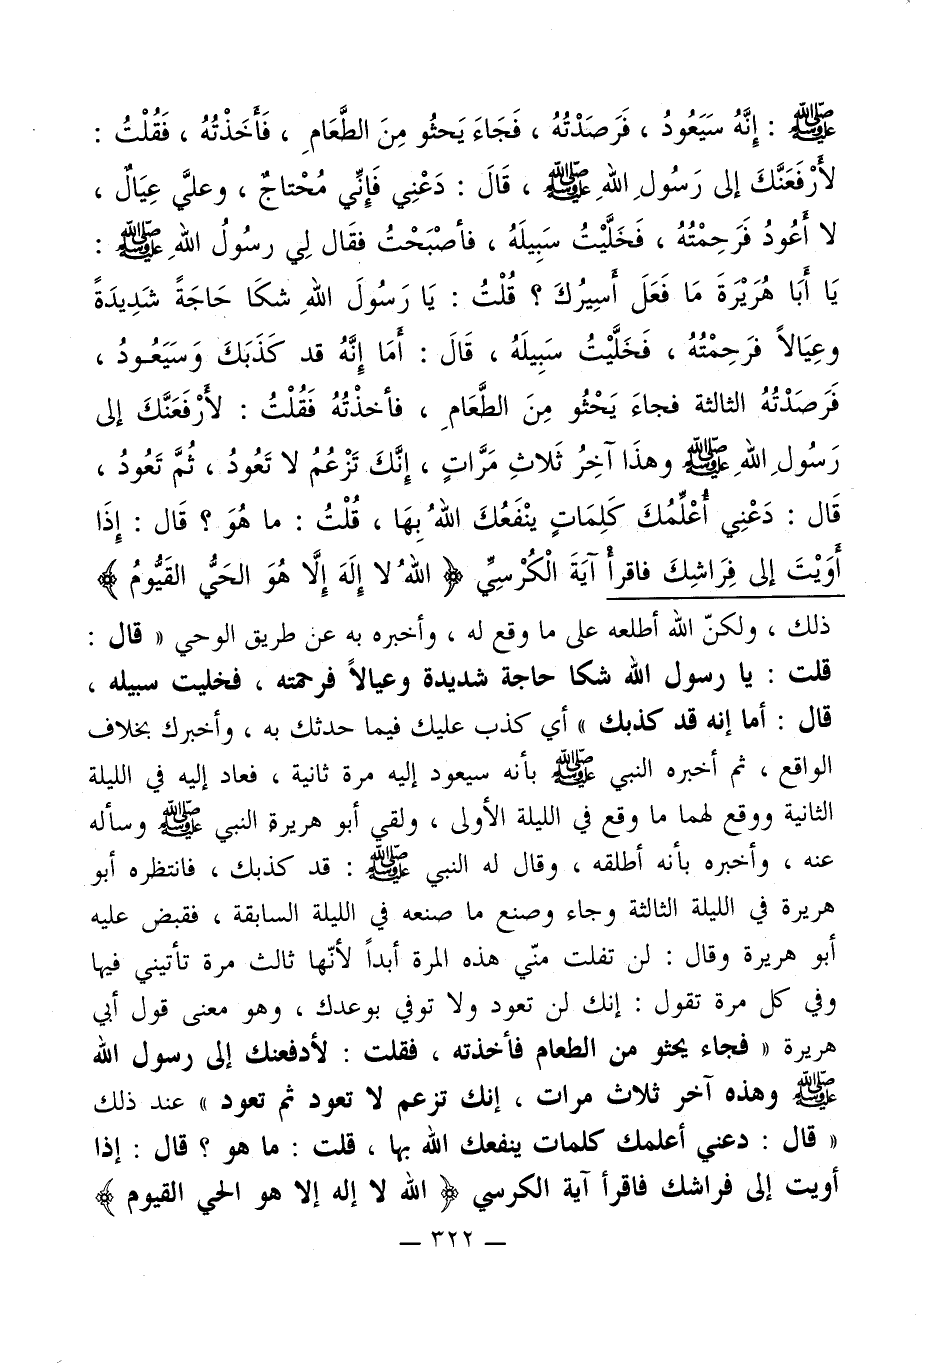 ﷺ : إِنَّهُ سَيَعُودُ ، فَرَصَدْتُهُ ، فَجَاءَ يَحثُو مِنَ الطَّعَامِ ، فَأَخَذْتُهُ ، فَقُلْتُ :
لأَرْفَعَنَّكَ إلى رَسُولِ اللهِ ﷺ ، قَالَ : دَعْنِي فَإِنِّي مُحْتاجٌ ، وعليَّ عِيَالٌ ،
لا أَعُودُ فَرَحِمْتُهُ ، فَخَلَّيْتُ سَبِيلَهُ ، فأصْبَحْتُ فقال لِي رسُولُ اللهِ ﷺ :
يَا أَبَا هُرَيْرَةَ مَا فَعَلَ أَسِيرُكَ ؟ قُلْتُ : يَا رَسُولَ اللهِ شكا حَاجَةً شَدِيدَةً
وعِيَالاً فرَحِمْتُهُ ، فَخَلَّيْتُ سبِيلَهُ ، قَالَ : أَمَا إِنَّهُ قد كَذَبَكَ وَسَيَعُودُ ،
فَرَصَدْتُهُ الثالثة فجاءَ يَحْثُو مِنَ الطَّعَامِ ، فأخذْتُهُ فَقُلْتُ : لأَرْفَعَنَّكَ إلى
رَسُولِ اللهِ ﷺ وهذَا آخِرُ ثَلاثِ مَرَّاتٍ ، إِنَّكَ تَزْعُمُ لا تَعُودُ ، ثُمَّ تَعُودُ ،
قَال : دَعْنِي أُعَلِّمُكَ كَلِمَاتٍ ينْفَعُكَ اللهُ بِهَا ، قُلْتُ : ما هُوَ ؟ قَال : إِذَا
أَوَيْتَ إلى فِرَاشِكَ فاقرأْ آيَةَ الْكُرْسِيِّ ﴿ اللهُ لا إِلَهَ إِلَّا هُوَ الحَيُّ القَيُّومُ ﴾
ذلك ، ولكنّ الله أطلعه على ما وقع له ، وأخبره به عن طريق الوحي « قال :
قلت : يا رسول الله شكا حاجة شديدة وعيالاً فرحمته ، فخليت سبيله ،
قال : أما إنه قد كذبك » أي كذب عليك فيما حدثك به ، وأخبرك بخلاف
الواقع ، ثم أخبره النبي ﷺ بأنه سيعود إليه مرة ثانية ، فعاد إليه في الليلة
الثانية ووقع لهما ما وقع في الليلة الأولى ، ولقي أبو هريرة النبي ﷺ وسأله
عنه ، وأخبره بأنه أطلقه ، وقال له النبي ﷺ : قد كذبك ، فانتظره أبو
هريرة في الليلة الثالثة وجاء وصنع ما صنعه في الليلة السابقة ، فقبض عليه
أبو هريرة وقال : لن تفلت منّي هذه المرة أبداً لأنّها ثالث مرة تأتيني فيها
وفي كل مرة تقول : إنك لن تعود ولا توفي بوعدك ، وهو معنى قول أبي
هريرة « فجاء يحثو من الطعام فأخذته ، فقلت : لأدفعنك إلى رسول الله
ﷺ وهذه آخر ثلاث مرات ، إنك تزعم لا تعود ثم تعود » عند ذلك
« قال : دعني أعلمك كلمات ينفعك الله بها ، قلت : ما هو ؟ قال : إذا
أويت إلى فراشك فاقرأ آية الكرسي ﴿ الله لا إله إلا هو الحي القيوم ﴾
ــ ٣٢٢ ــ